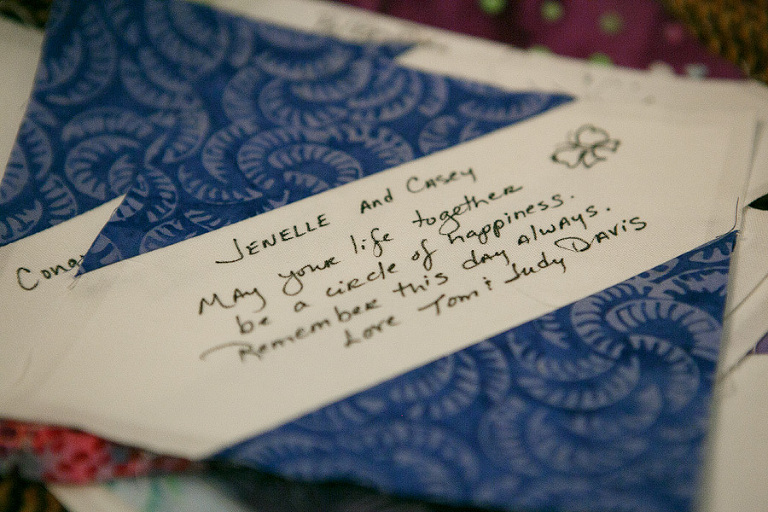 Jenelle And Casey
May your life together
be a circle of happiness.
Remember this day always.
Love Tom & Judy Davis
Cong